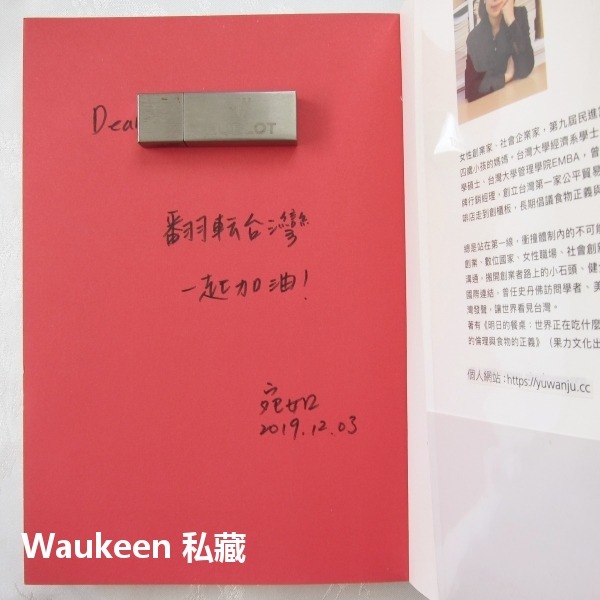 Dear
LOT
翻転台灣
一起加油！
宛如
2019.12.03
女性創業家、社會企業家，第九屆民進
四歲小孩的媽媽。台灣大學經濟系學士
學碩士、台灣大學管理學院EMBA，曾
牌行銷經理，創立台灣第一家公平貿易
啡店走到創櫃板，長期倡議食物正義與
總是站在第一線，衝撞體制內的不可能
創業、數位國家、女性職場、社會創新
溝通，搬開創業者路上的小石頭、健全
國際連結，曾任史丹佛訪問學者、美
灣發聲，讓世界看見台灣。
著有《明日的餐桌：世界正在吃什麼
的倫理與食物的正義》（果力文化出
個人網站：https://yuwanju.cc
Waukeen 私藏